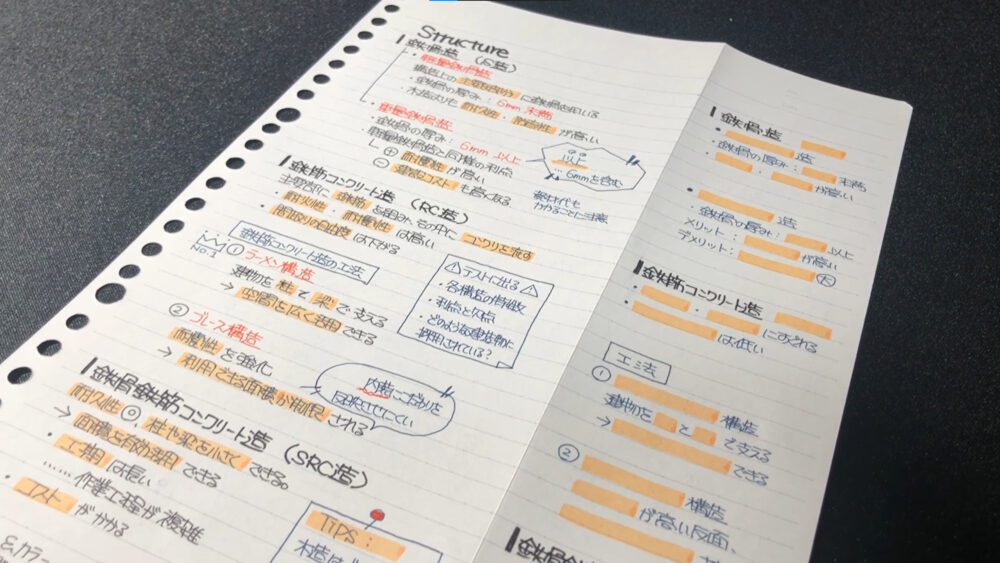 Structure
鉄骨造（S造）
・軽量鉄骨造
構造上の主要な部分に鉄骨を用いる
・鉄骨の厚み：6mm未満
・木造よりも耐久性・耐震性が高い
・重量鉄骨造
・鉄骨の厚み：6mm以上
・軽量鉄骨造と同様の利点
⊕ 耐震性が高い
⊖ 建設コストも高くなる
以上
…6mmを含む
鉄筋コンクリート造（RC造）
主要部に鉄筋を組み、その中にコンクリを流す
・耐火性・耐震性は高い
・間取りの自由度は下がる
鉄筋コンクリート造の工法
No.1
① ラーメン構造
建物を柱と梁で支える
→ 空間を広く活用できる
② ブレース構造
耐震性を強化
→ 利用できる面積が制限される
⚠テストに出る⚠
・各構造の特徴
・利点と欠点
・どのような建造物に
採用されている？
内装にこだわりを
反映させにくい
鉄骨鉄筋コンクリート造（SRC造）
耐久性◎、柱や梁を小さくできる。
→ 面積を有効活用できる
・工期は長い
……作業工程が複雑
・コストがかかる
TIPS：
木造は
&カラー
鉄骨造
・造
・鉄骨の厚み：未満
・・が高い
・造
・鉄骨の厚み：以上
メリット：が高い
デメリット：大
鉄筋コンクリート造
・・にすぐれる
・は低い
工法
① 構造
建物をとで支える
→ できる
② 構造
が高い反面、
鉄骨